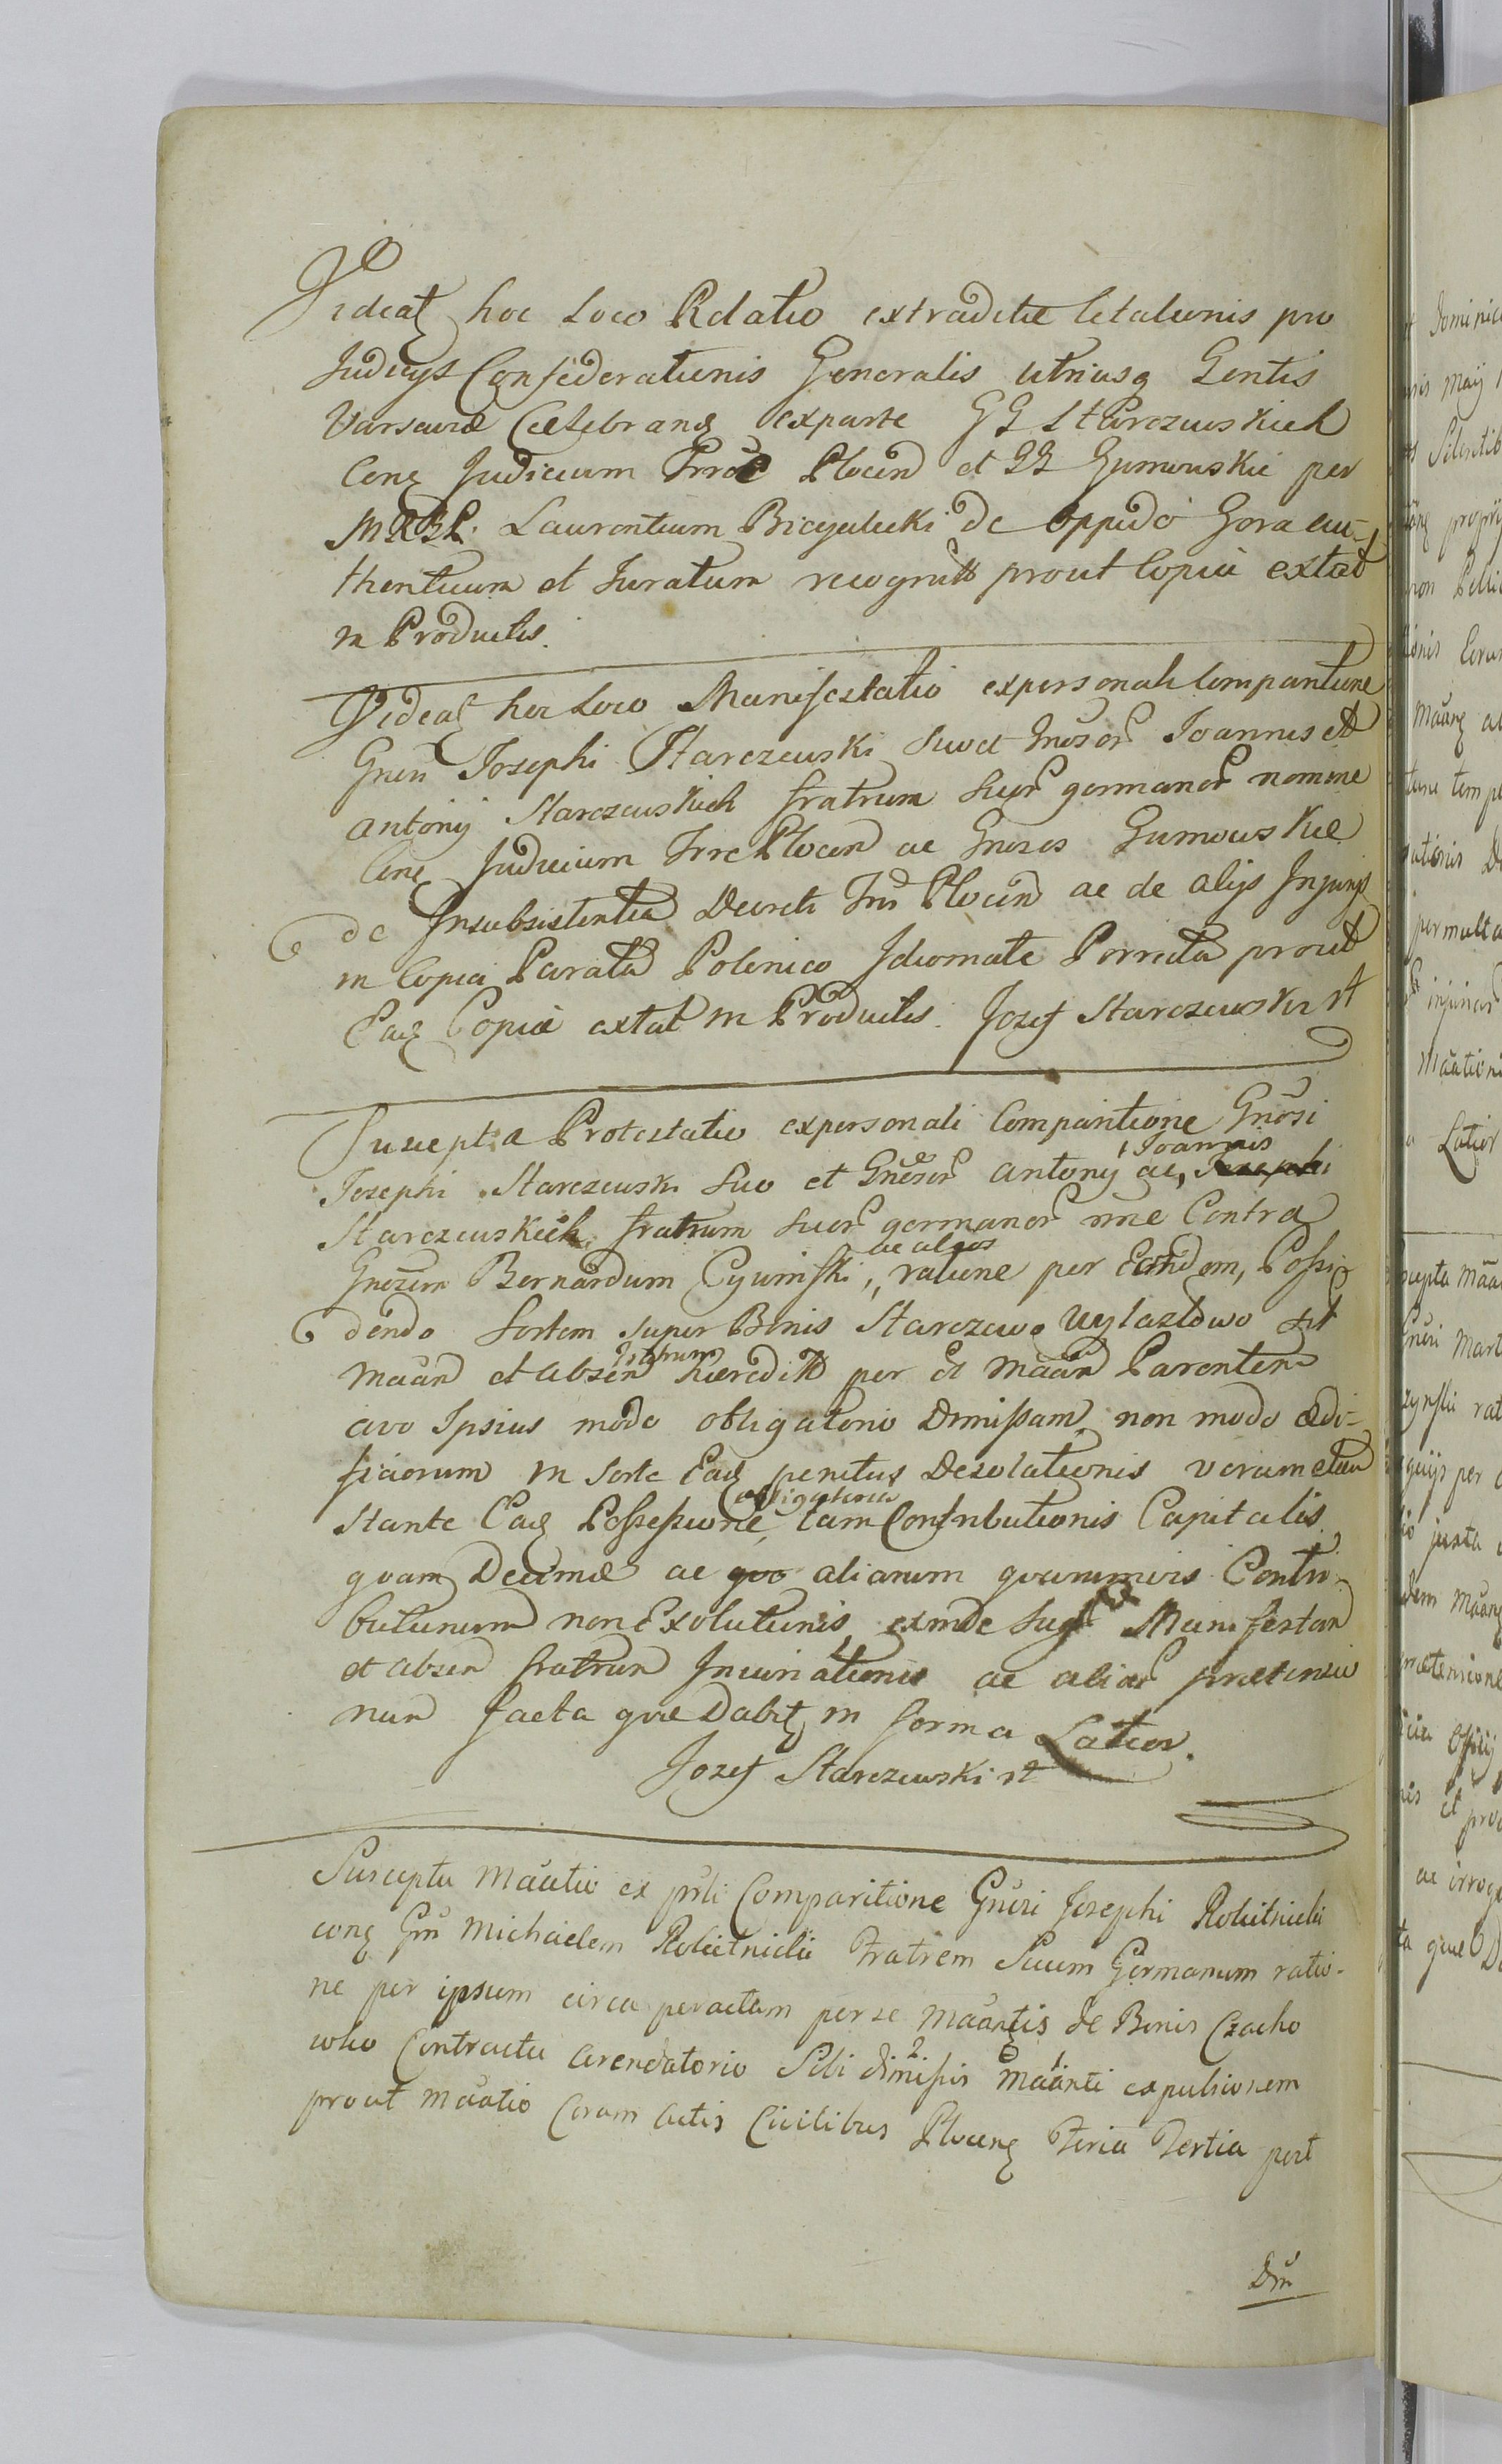 Videatꝫ hoc Loco Relatio extraditæ Citationis pro
Judicijs Confæderationis Generalis utriusq Gentis
Varsaviæ Celebranꝫ exparte GG Starczewskich
Conꝫ Judicium Trrē Plocen et GG Gumowskie per
Laurentium Biegalecki de Oppido Gora au-
thenticum et Juratum recognitt prout Copia extat
in Productis.
Videatꝫ hoc Loco Manifestatio expersonali Comparitione
Gnsi Josephi Starczewski suo et Gnosor Joannis et
Antonij Starczewskich fratrum suor germanor nomine
Conꝫ Judicium Trre Plocen ac Gnosos Gumowskie
de Insubsistentia Decreti Trris Plocen ac de alijs Injurijs
in Copia Parata Polonico Idiomate Porrecta prout
Eaꝫ Copia extat in Productis. Jozef Starczewski st
Suscepta Protestatio expersonali Comparitione Gnosi
Josephi Starczewski suo et Gnosor Antonij ac, Joannis
Starczewskich fratrum suor germanor nne Contra
Gnosum Bernardum Cywinski, ac alios ratione per Eundem, Possi-
dendo Sortem super Bonis Starczewo Wylazłowo
Maan et absen fratrum hæreditt per et Maan Parentem
avo Ipsius modo obligatorio Dimissam, non modo ædi-
ficiorum in Sorte Eaꝫ penitus Desolationis verumetiam
stante Eaꝫ Possessione obligatoria, tam Contributionis Capitalis
quam Decimæ ac aliarum quarumvis Contri-
butionum non Exolutionis, exinde Manifestan
et absen fratrum Inuriationis ac aliar prætensio
num facta quæ Dabitꝫ in forma Latior.
Jozef Starczewski st
Suscepta Maatio ex prli Comparitione Gnosi Josephi Rokitnicki
conꝫ Gm Michaelem Rokitnicki Fratrem Suum Germanum ratio-
ne per ipsum circa peractam per se Maantis de Bonis Czacho
wo Contractu arendatorio Sibi dimissis 2 Maanti 1 expulsionem
prout Maatio Coram Actis Civilibus Plocenꝫ Feria Tertia post
Dm